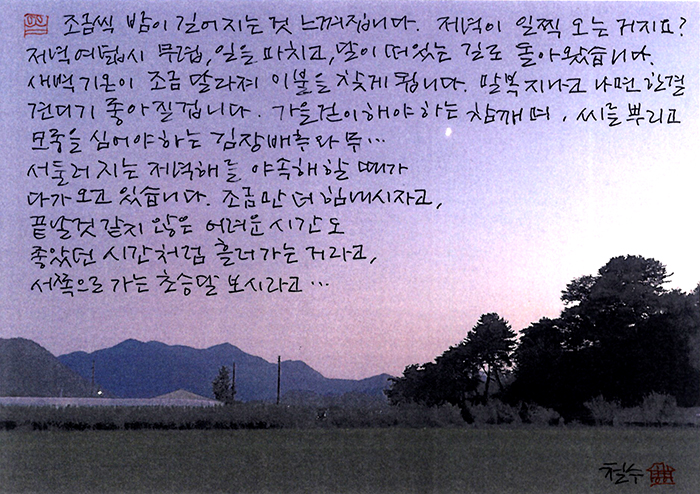 조금씩 밤이 길어지는 것 느껴집니다. 저녁이 일찍 오는 거지요?
저녁 여덟시 무렵, 일을 마치고, 달이 떠있는 길로 돌아왔습니다.
새벽 기온이 조금 달라져 이불을 찾게 됩니다. 말복 지나고 나면 한결
견디기 좋아질겁니다. 가을걷이해야 하는 참깨며, 씨를 뿌리고
모종을 심어야하는 김장배추와 무...
서둘러 지는 저녁해를 야속해할 때가
다가오고 있습니다. 조금만 더 힘내시자고,
끝날것 같지 않은 어려운 시간도
좋았던 시간처럼 흘러가는 거라고,
서쪽으로 가는 초승달 보시라고...
철수